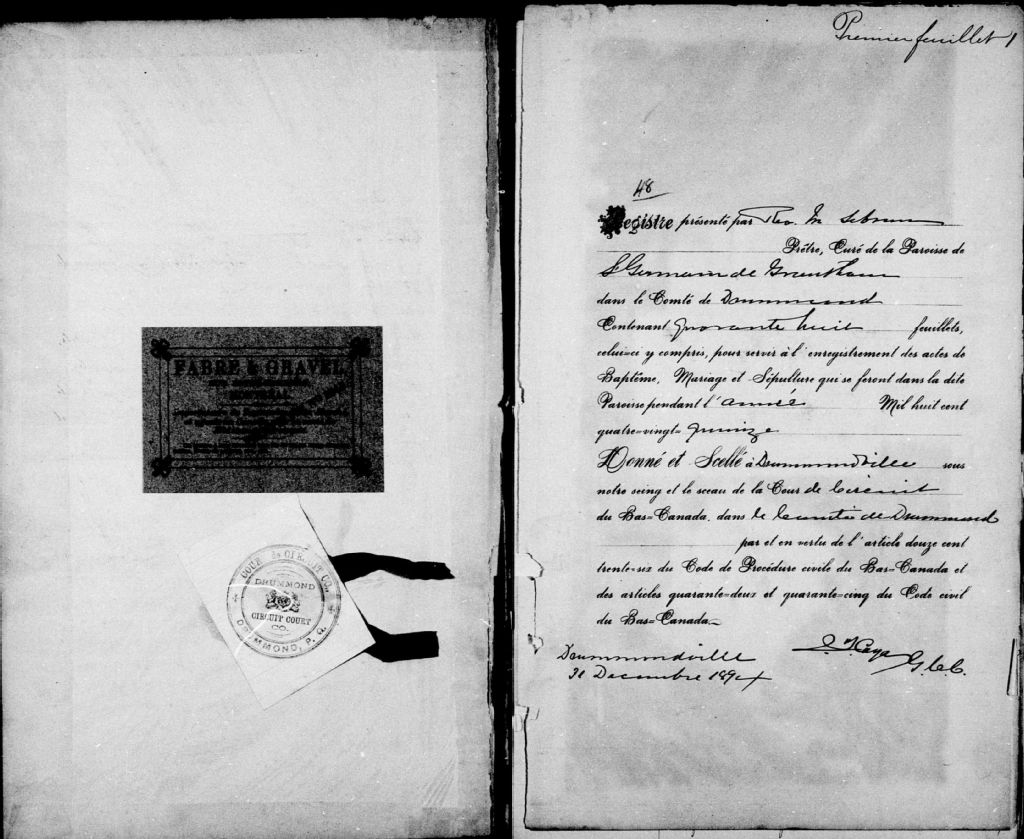 FABRE & GRAVEL
COUR de CIRCUIT CO.
DRUMMOND
CIRCUIT COURT
CO.
DRUMMOND, P. Q.
Premier feuillet 1
48
Registre présenté par Rev. M
Prêtre, Curé de la Paroisse de
St Germain de Grantham
dans le Comté de Drummond
Contenant quarante huit feuillets,
celui=ci y compris, pour servir à l'enregistrement des actes de
Baptême, Mariage et Sépulture qui se feront dans la dite
Paroisse pendant l'année Mil huit cent
quatre=vingt= quinze
Donné et Scellé à Drummondville sous
notre seing et le sceau de la Cour de Circuit
du Bas=Canada, dans le Comté de Drummond
par et en vertu de l'article douze cent
trente=six du Code de Procédure civile du Bas=Canada et
des articles quarante=deux et quarante=cinq du Code civil
du Bas=Canada.
Drummondville
31 Decembre 1894
G.C.C.